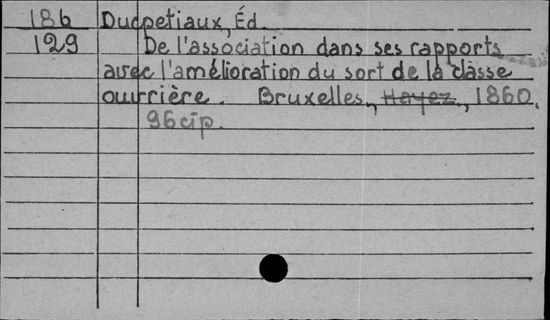 186 Ducpetiaux, Éd.
129 De l'association dans ses rapports
avec l'amélioration du sort de la classe
ouvrière. Bruxelles, Hayez, 1860.
96 p.